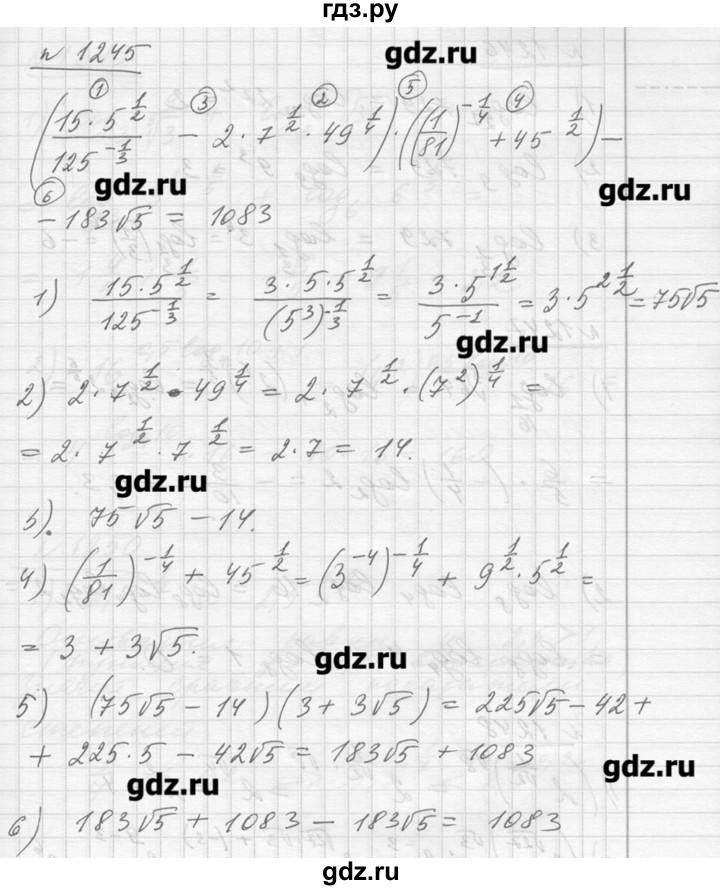 гдз.ру
n 1245
gdz.ru
① ③ ② ⑤ ④
(15·5^(1/2) / 125^(-1/3) − 2·7^(1/2)·49^(1/4))·((1/81)^(-1/4) + 45^(1/2)) −
gdz.ru
gdz.ru
⑥
− 183√5 = 1083
1) 15·5^(1/2) / 125^(-1/3) = 3·5·5^(1/2) / (5^3)^(-1/3) = 3·5^(1 1/2) / 5^(-1) = 3·5^(2 1/2) = 75√5
gdz.ru
2) 2·7^(1/2)·49^(1/4) = 2·7^(1/2)·(7^2)^(1/4) =
= 2·7^(1/2)·7^(1/2) = 2·7 = 14.
gdz.ru
3). 75√5 − 14.
4) (1/81)^(-1/4) + 45^(1/2) = (3^(-4))^(-1/4) + 9^(1/2)·5^(1/2) =
= 3 + 3√5.
gdz.ru
5) (75√5 − 14)(3 + 3√5) = 225√5 − 42 +
+ 225·5 − 42√5 = 183√5 + 1083
gdz.ru
gdz.ru
6) 183√5 + 1083 − 183√5 = 1083
gdz.ru